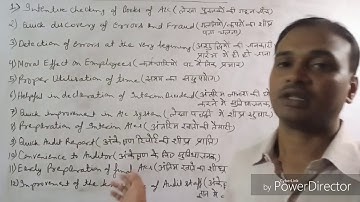 1) Intensive Checking of Books of A/c (लेखा पुस्तकों की गहन जाँच)
2) Quick discovery of Errors and Fraud (
3) Detection of Errors at the very beginning (अशुद्धियों की जानकारी
4) Moral Effect on Employees (कर्मचारियों पर नैतिक प्रभाव)
5) Proper Utilisation of time (समय का सदुपयोग)
6) Helpful in declaration of Interim Dividend (अंतरिम लाभांश की
7) Quick Improvement in A/c System (लेखा पद्धति में शीघ्र सुधार)
8) Preparation of Interim A/cs (अंतरिम खातों की तैयारी)
9) Quick Audit Report (अंकेक्षण रिपोर्ट शीघ्र
10) Convenience to Auditor (अंकेक्षक के लिए सुविधाजनक)
11) Early Preparation of final A/cs (अंतिम खाते का शीघ्र
12) Improvement of the of Audit staff (
CyberLink
by PowerDirector